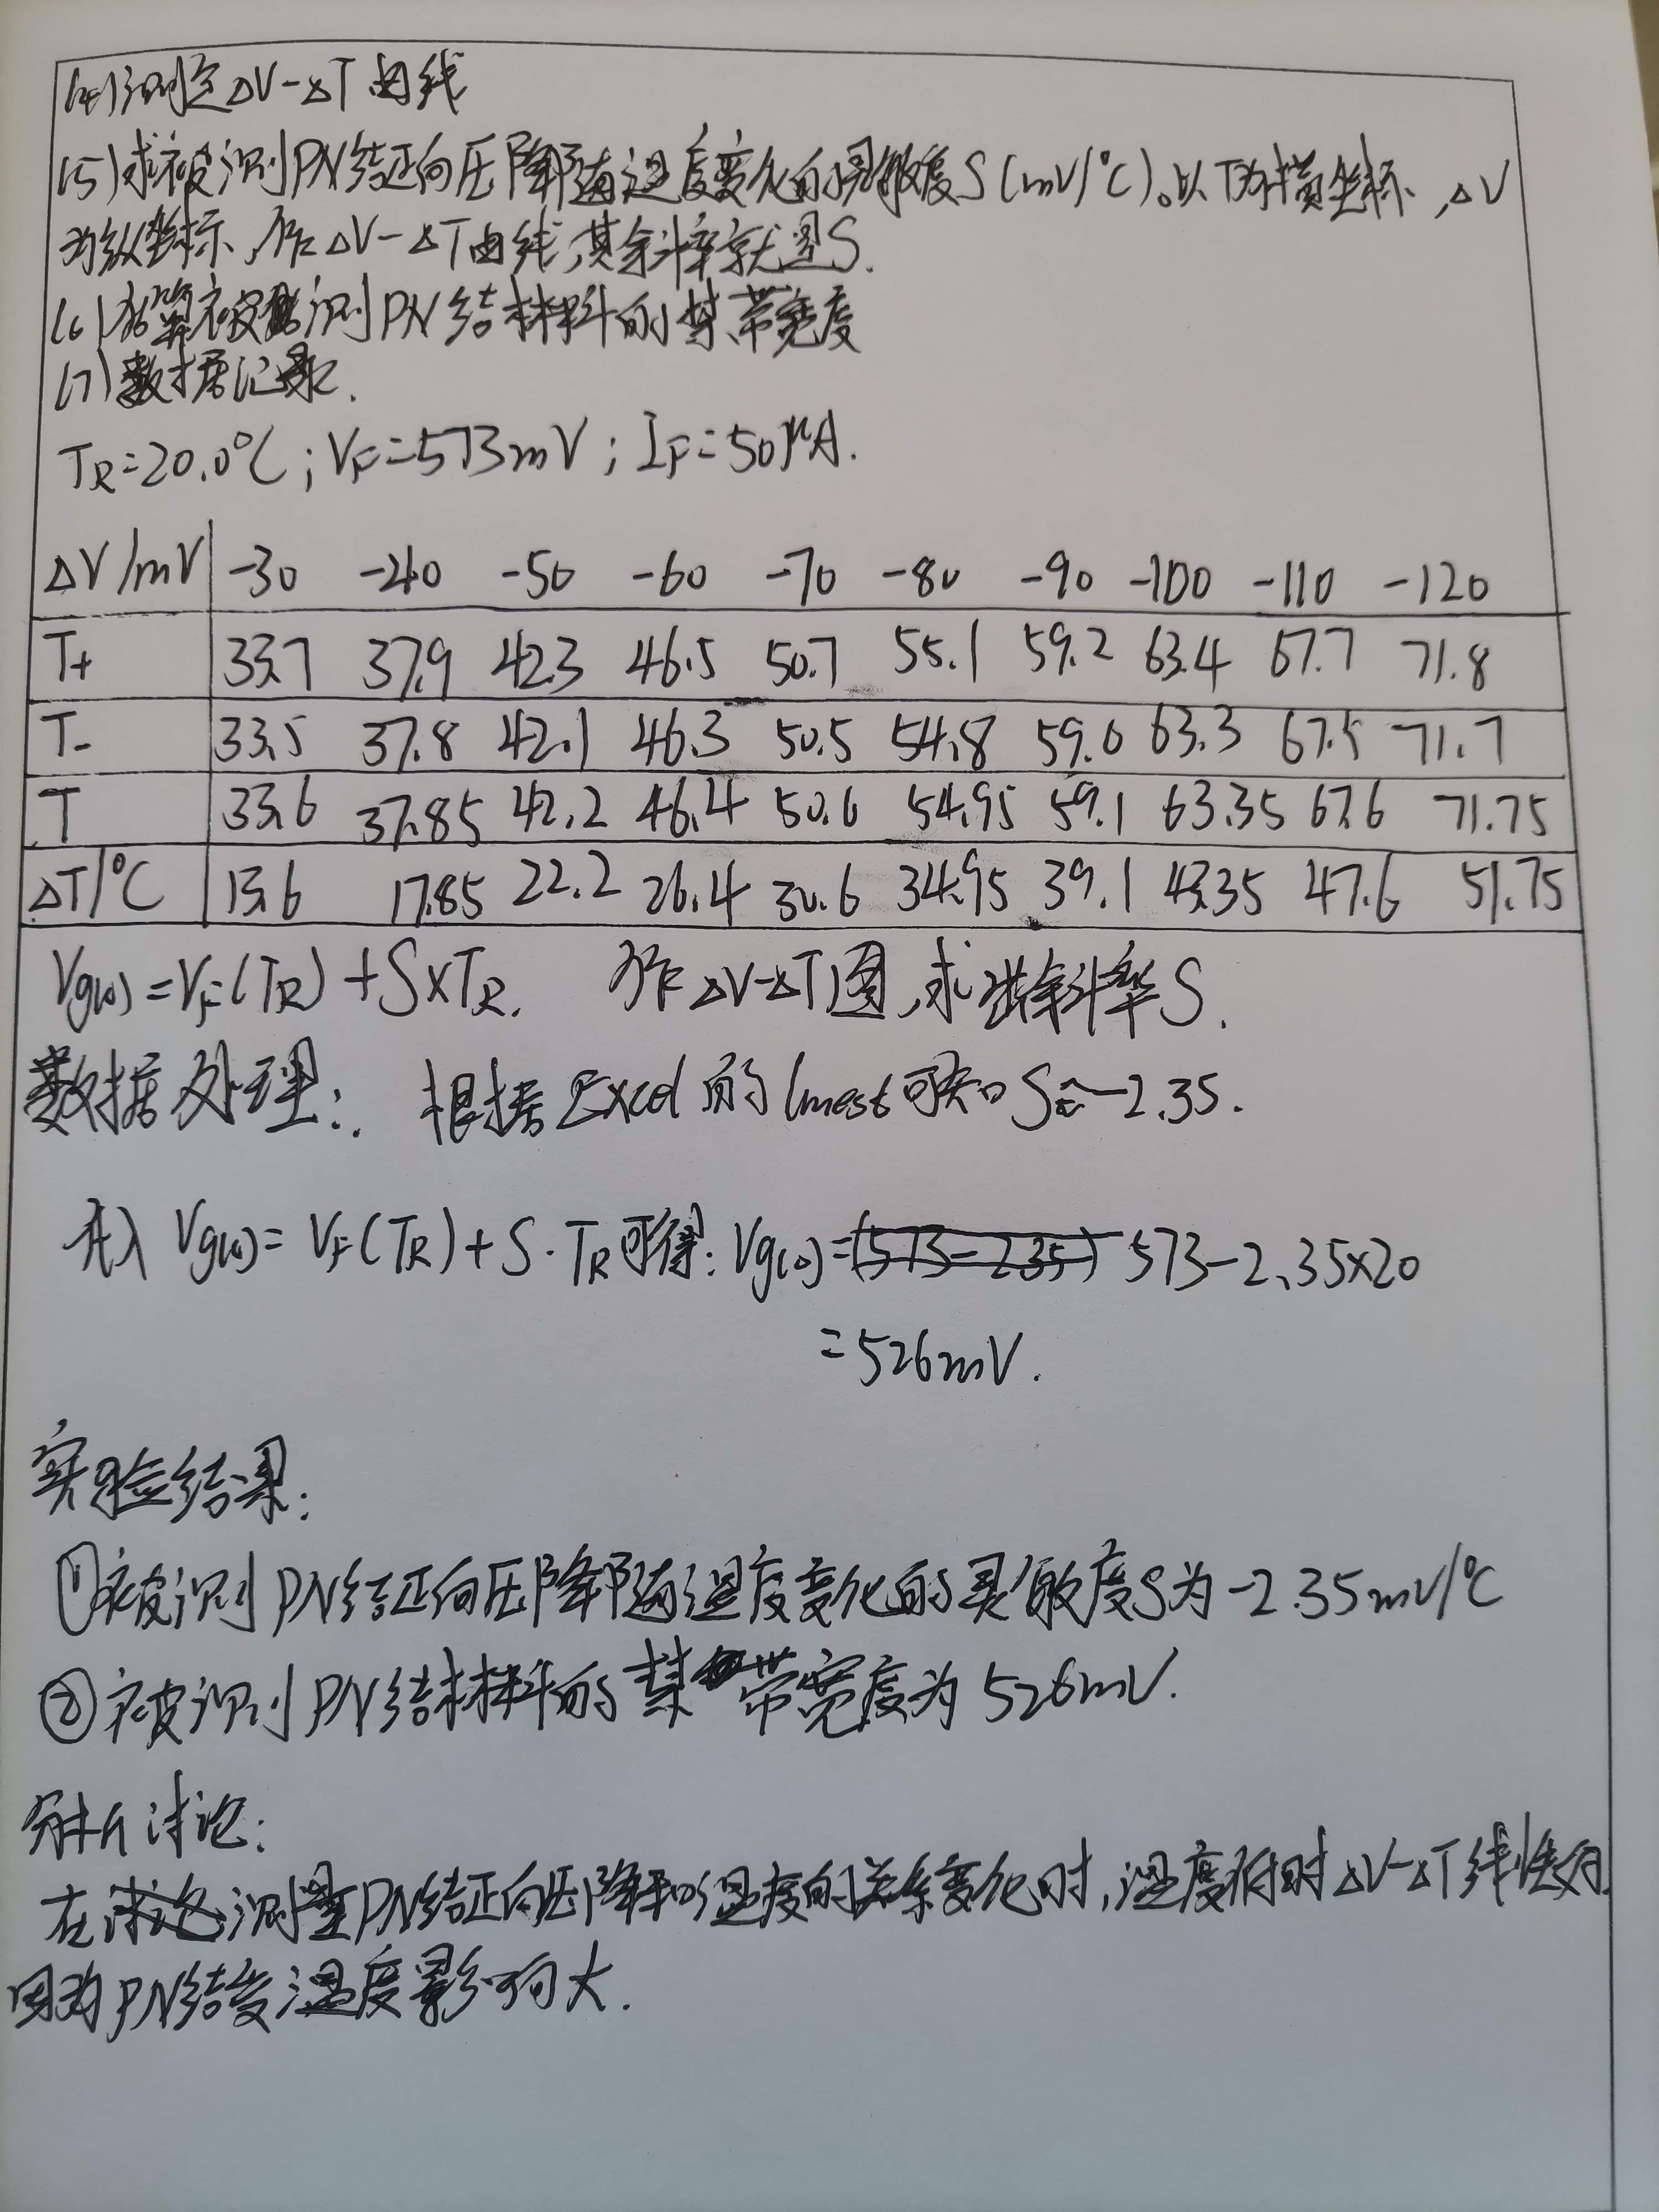 (4)测定ΔV-ΔT曲线
(5)求被测PN结正向压降随温度变化的灵敏度S(mV/℃)。以T为横坐标,ΔV
为纵坐标,作ΔV-ΔT曲线,其斜率就是S.
(6)估算被测PN结材料的禁带宽度
(7)数据记录.
TR=20.0℃;VF=573mV;IF=50μA.
ΔV/mV -30 -40 -50 -60 -70 -80 -90 -100 -110 -120
T+ 33.7 37.9 42.3 46.5 50.7 55.1 59.2 63.4 67.7 71.8
T- 33.5 37.8 42.1 46.3 50.5 54.8 59.0 63.3 67.5 71.7
T 33.6 37.85 42.2 46.4 50.6 54.95 59.1 63.35 67.6 71.75
ΔT/℃ 13.6 17.85 22.2 26.4 30.6 34.95 39.1 43.35 47.6 51.75
Vg(0)=VF(TR)+S×TR. 作ΔV-ΔT图,求出斜率S.
数据处理: 根据Excel的linest可知S≈-2.35.
代入Vg(0)=VF(TR)+S·TR可得:Vg(0)=(573-2.35) 573-2.35×20
=526mV.
实验结果:
①被测PN结正向压降随温度变化的灵敏度S为-2.35mV/℃
②被测PN结材料的禁带宽度为526mV.
分析讨论:
在测量PN结正向压降和温度的关系变化时,温度低时ΔV-ΔT线性好
因为PN结受温度影响大.